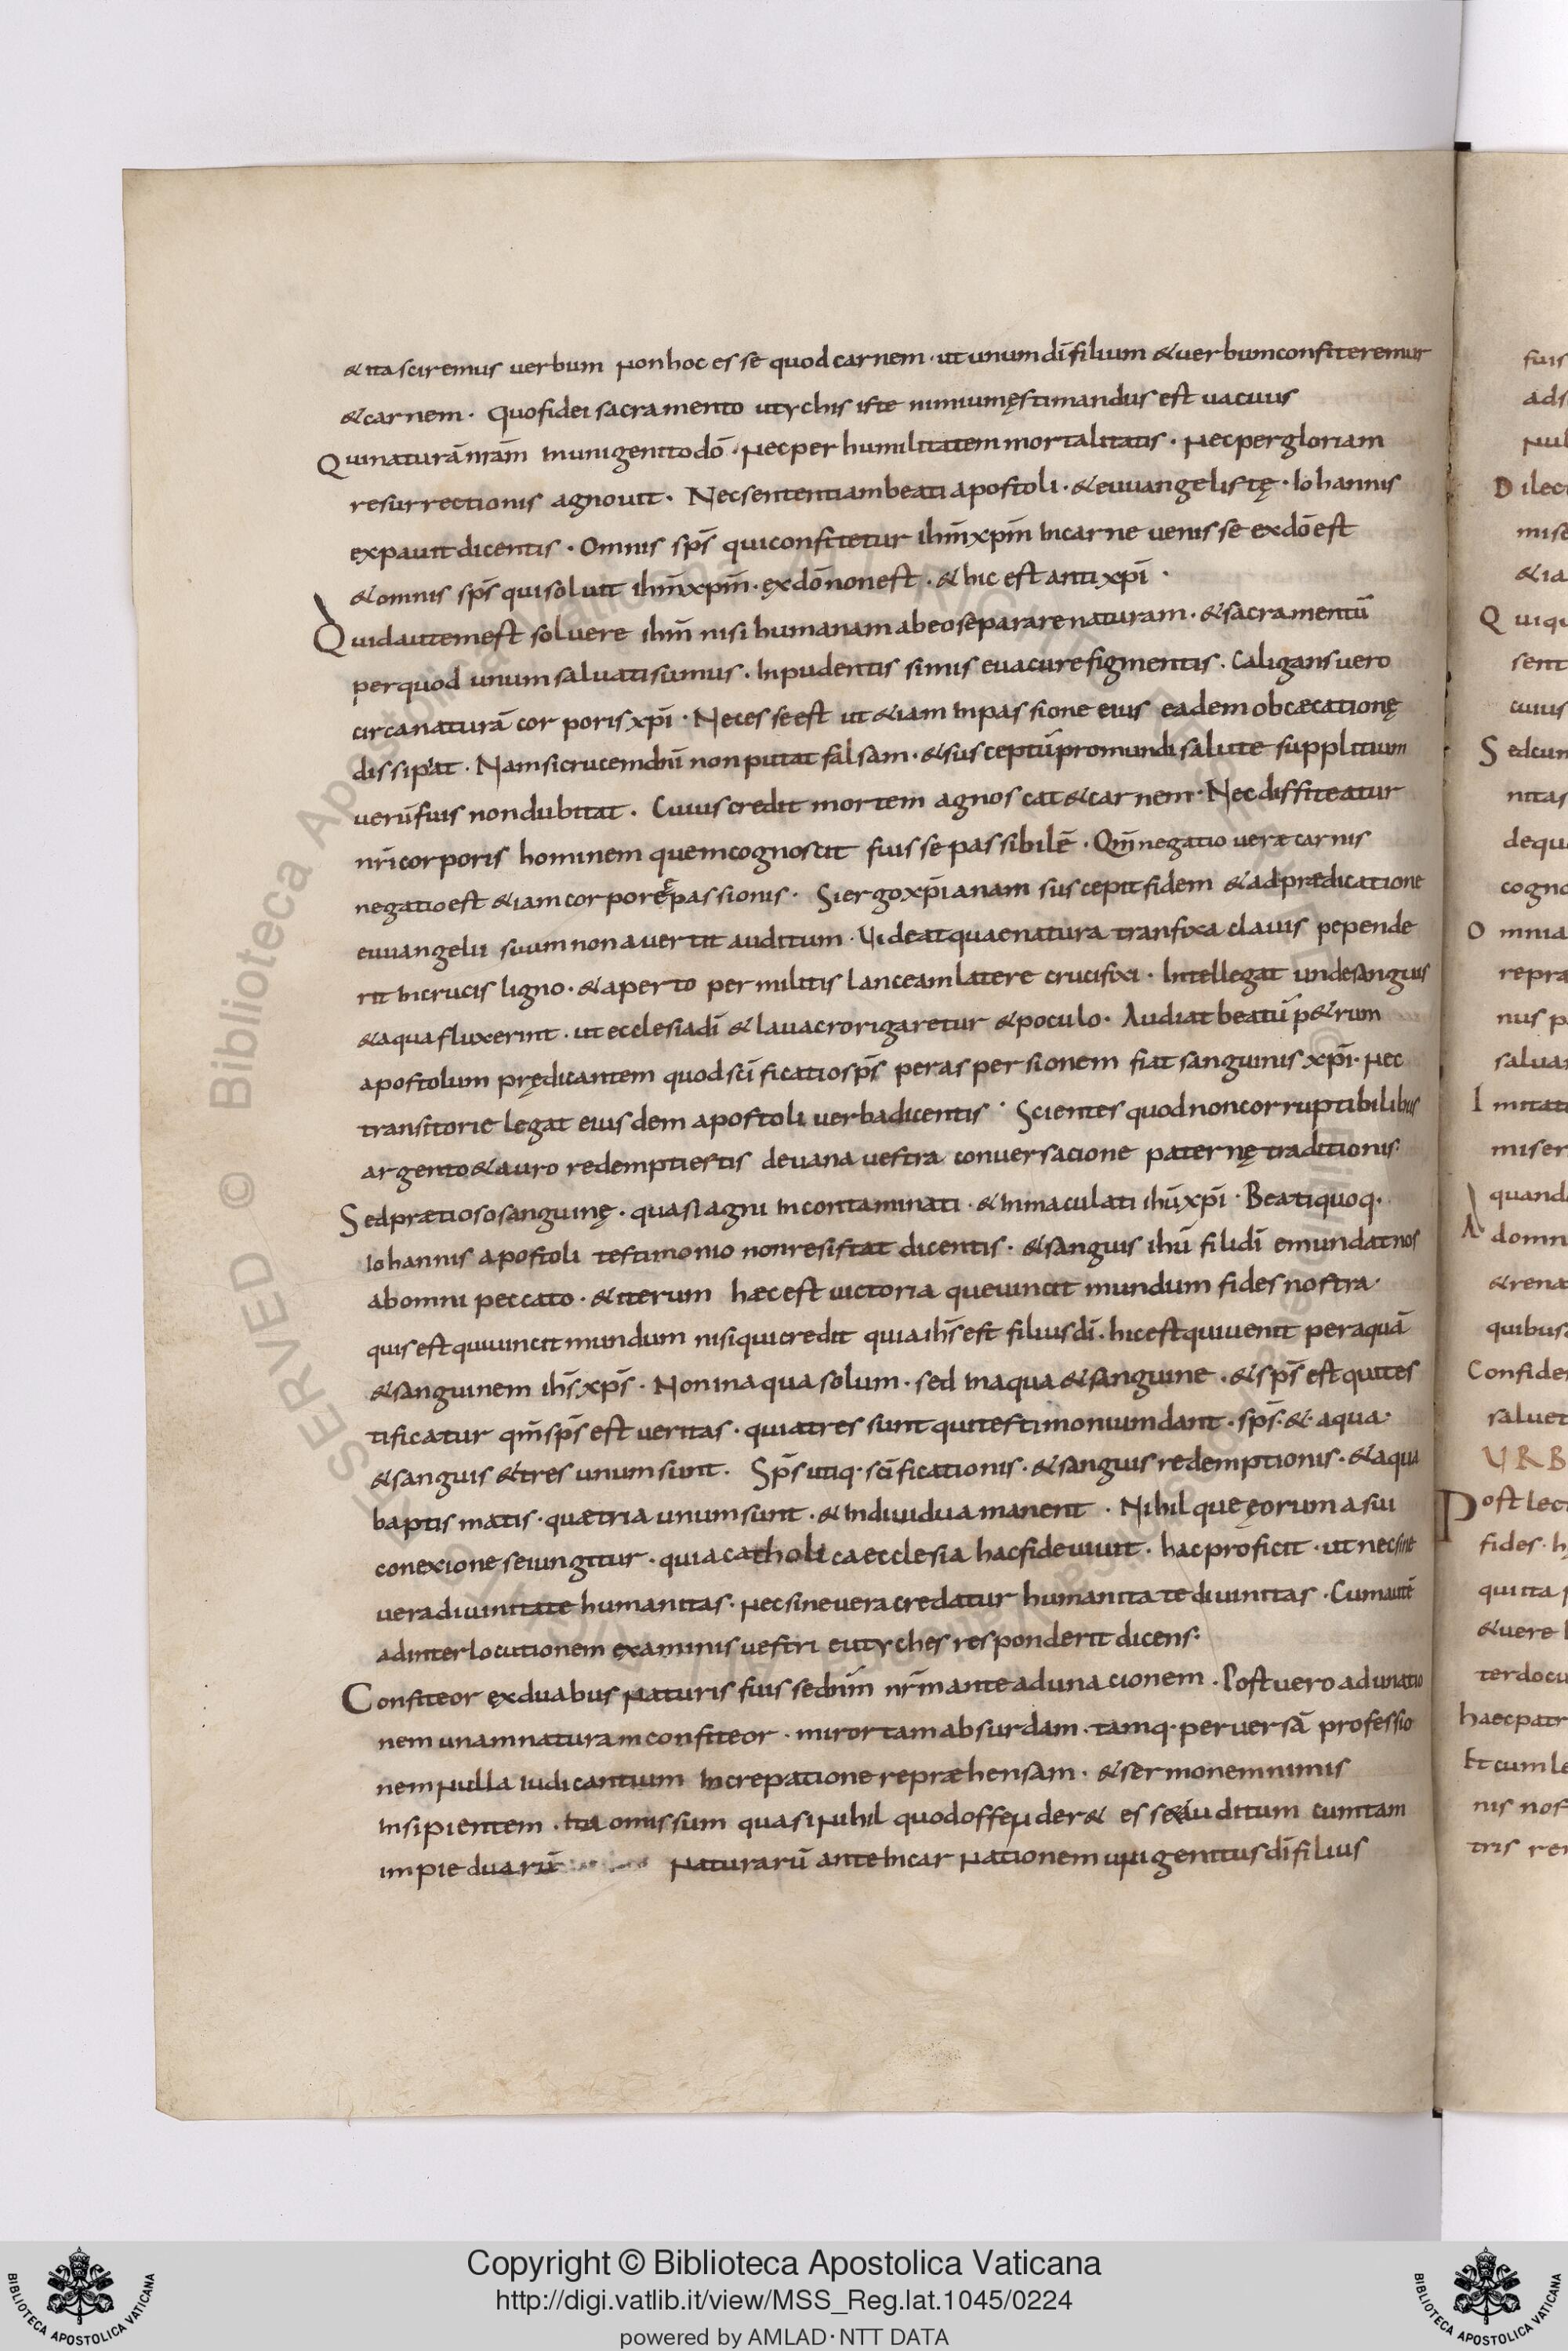 & ita sciremus verbum non hoc esse quod carnem · ut unum dī filium & uerbum confiteremur
& carnem · Quo fidei sacramento utychis iste nimium ęstimandus est uacuus
Qui naturā nr̄am in unigenito dō · Nec per humilitatem mortalitatis · Nec per gloriam
resurrectionis agnouit · Nec sententiam beati apostoli · & euuangelistę · Iohannis
expauit dicentis · Omnis sp̄s qui confitetur ihm̄ xpm̄ in carne uenisse ex dō est
& omnis sp̄s qui soluit ihm̄ xpm̄ · ex dō non est · & hic est antixpī ·
Quid autem est soluere ihm̄ nisi humanam ab eo separare naturam · & sacramentū
per quod unum saluati sumus · Inpudentissimis euacure figmentis · Caligans uero
circa naturā corporis xpī · Necesse est ut &iam in passione eius eadem obcæcationę
dissipiat · Nam si crucem dnī non putat falsam · & susceptū pro mundi salute supplitium
uerū fuis non dubitat · Cuius credit mortem agnoscat & carnem · Nec diffiteatur
nr̄i corporis hominem quem cognoscit fuisse passibilē · Qm̄ negatio ueræ carnis
negatio est &iam corporeę passionis · Si ergo xp̄ianam suscepit fidem & ad prædicatione
euuangelii suum non auertit auditum · Uideat quae natura tranfixa clauis pepende
rit in crucis ligno · & aperto per militis lanceam latere crucifixi · Intellegat unde sanguis
& aqua fluxerint · ut ecclesia dī & lauacro rigaretur & poculo · Audiat beatū p&rum
apostolum prędicantem quod scīficatio sp̄s per aspersionem fiat sanguinis xpī · Nec
transitorie legat eiusdem apostoli uerba dicentis · Scientes quod non corruptibilibus
argento & auro redempti estis de uana uestra conuersacione paternę traditionis ·
Sed prætioso sanguinę · quasi agni incontaminati · & inmaculati ihū xpī · Beati quoq·
Iohannis apostoli testimonio non resistat dicentis · & sanguis ihū fili dī emundat nos
ab omni peccato · & iterum hæc est uictoria que uincit mundum fides nostra ·
quis est qui uincit mundum nisi qui credit quia ihs̄ est filius dī · hic est qui uenit per aquā
& sanguinem ihs̄ xp̄s · Non in aqua solum · sed in aqua & sanguine · & sp̄s est qui tes
tificatur qm̄ sp̄s est ueritas · quia tres sunt qui testimonium dant · sp̄s · & · aqua ·
& sanguis & tres unum sunt · Sp̄s utiq · scīficationis · & sanguis redemptionis · & aqua
baptismatis · quæ tria unum sunt · & indiuidua manent · Nihilque ęorum a sui
conexione seiungitur · quia catholica ecclesia hac fide uiuit · hac proficit · ut nec sine
uera diuinitate humanitas · Nec sine uera credatur humanitate diuinitas · Cum autē
ad interlocutionem examinis uestri eutyches responderit dicens ·
Confiteor ex duabus naturis fuis se dnm̄ nr̄m ante adunacionem · Post uero adunatio
nem unam naturam confiteor · miror tam absurdam · tamq · peruersā professio
nem nulla iudicantium increpatione repræhensam · & sermonem nimis
insipientem · ita omissum quasi nihil quod offender& esse auditum cum tam
impie duarū naturarū ante incarnationem unigenitus dī filius
fuis
ads
nul
Dilec
mise
& ia
Quiqu
sent
cuius
Sedcum
nitas
dequ
cogno
Omnia
repra
nus p
salua
Imitat
miser
quand
A domn
& rena
quibus
Confide
saluet
URB
Post lec
fides · h
qui ita
& uere
terdocu
haec patr
Et cum le
nis nos
tris re
RESERVED © Biblioteca Apostolica Vaticana
Copyright © Biblioteca Apostolica Vaticana
http://digi.vatlib.it/view/MSS_Reg.lat.1045/0224
powered by AMLAD · NTT DATA
BIBLIOTECA APOSTOLICA VATICANA
BIBLIOTECA APOSTOLICA VATICANA